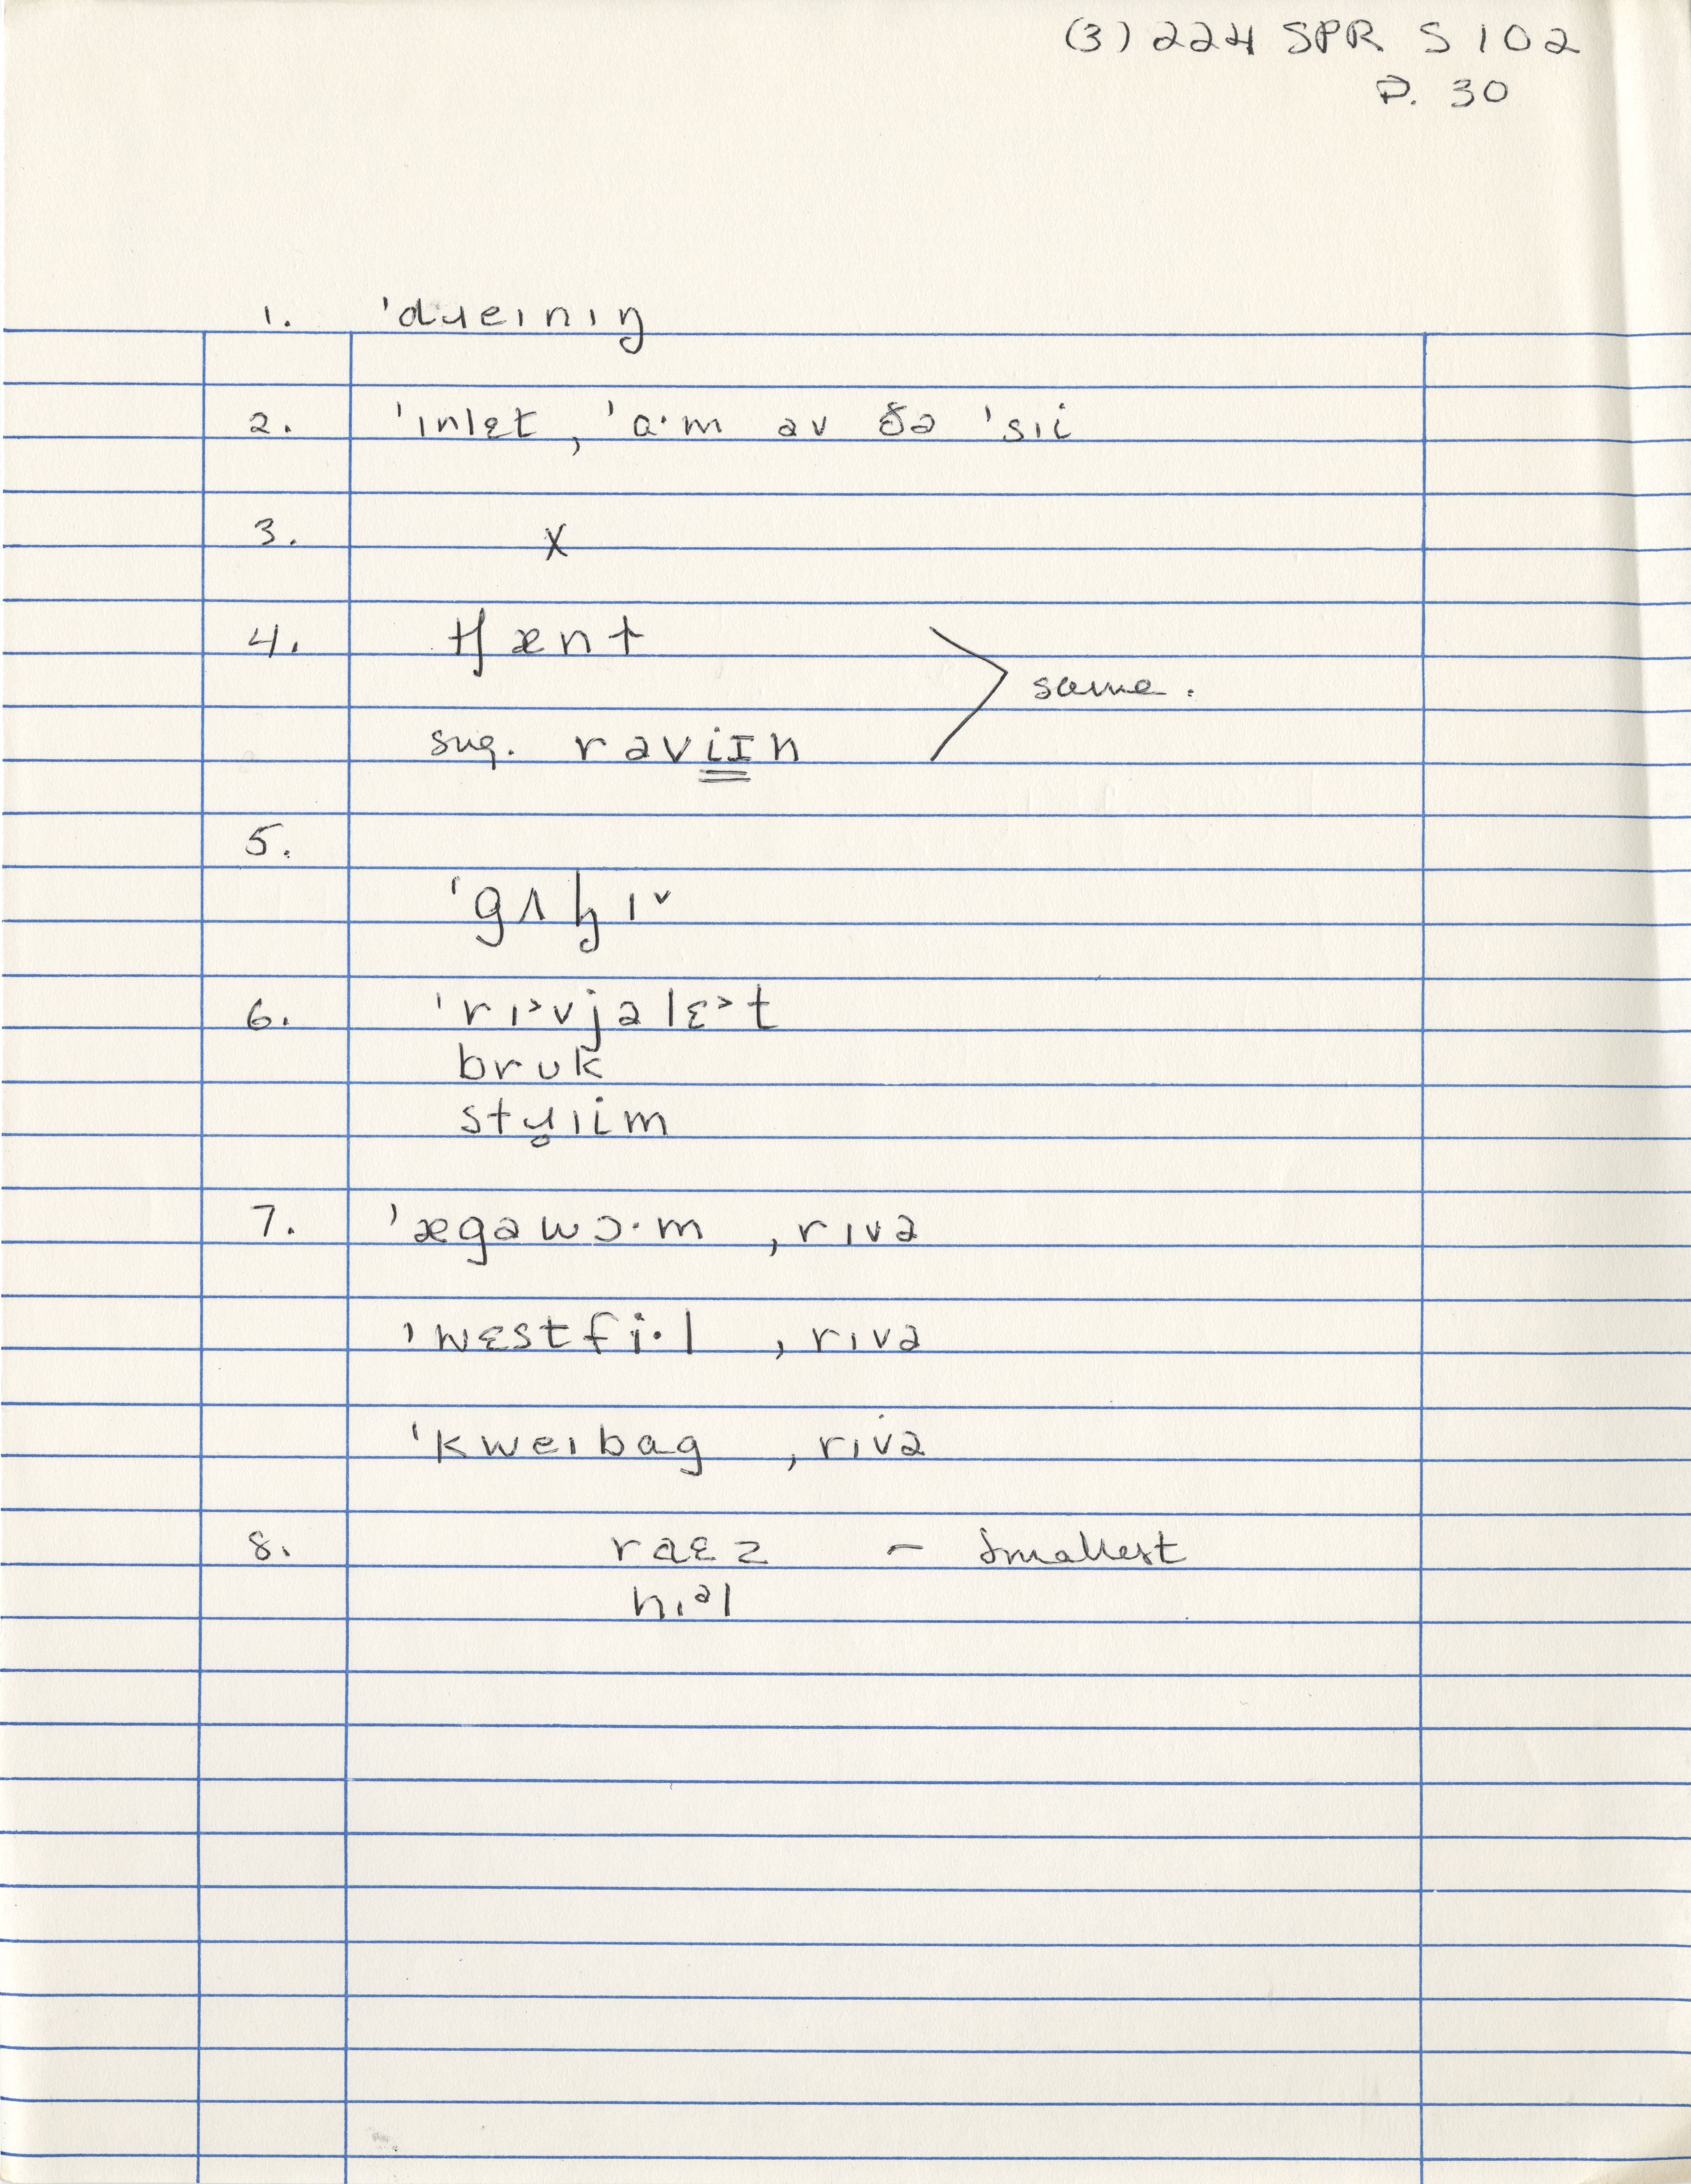 (3) 224 SPR S 102
P. 30
1. ˈdɹeɪnɪŋ
2. ˈɪnlɛt, ˈɑ·m əv ðə ˈsɪi
3. X
4. tʃænt
same.
sug. rəvi̳ɪ̳n
5. ˈgʌɫɪ˅
6. ˈrɪ˃vjəlɛ˃t
brʊk
stɹ̥ɪim
7. ˈægəwɔ·m, rɪvə
ˈwɛstfi·l, rɪvə
ˈkweɪbag, rɪvə
8. raɛz – smallest
hɪəl